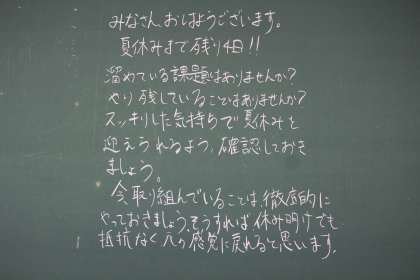 みなさん おはようございます。
夏休みまで残り4日!!
溜めている課題はありませんか?
やり残していることはありませんか?
スッキリした気持ちで夏休みを
迎えられるよう、確認しておき
ましょう。
今取り組んでいることは、徹底的に
やっておきましょう。そうすれば休み明けでも
抵抗なく元の感覚に戻れると思います。